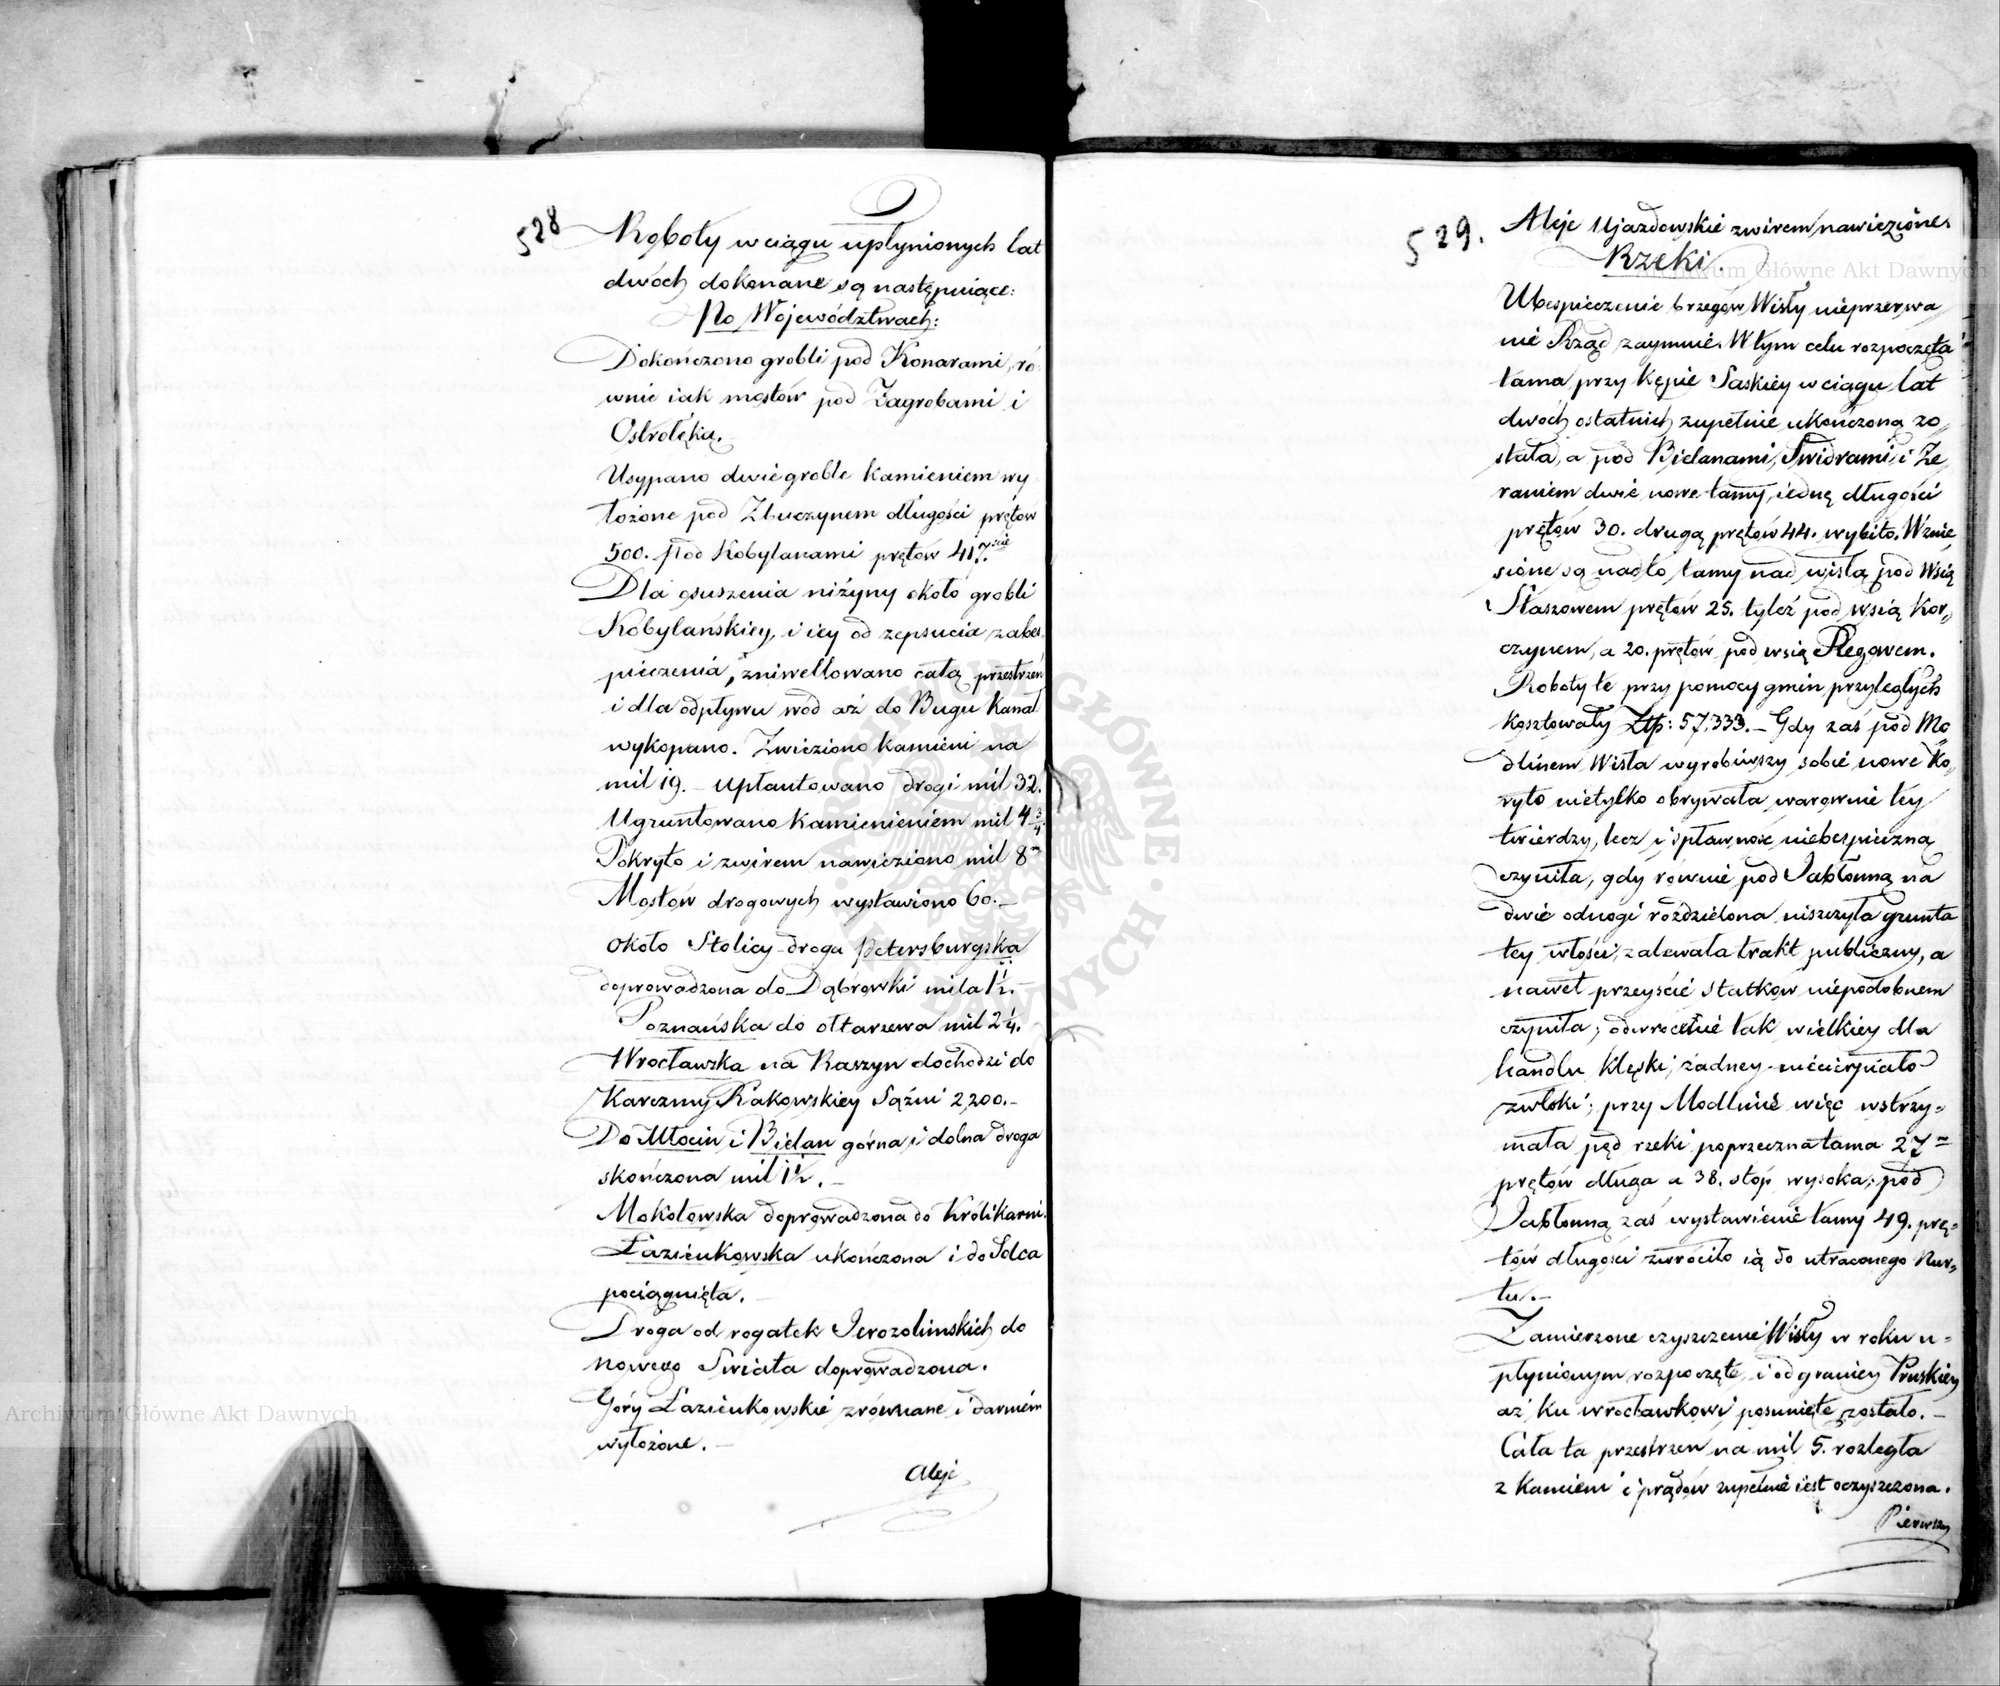 528
Roboty w ciągu upłynionych lat
dwóch dokonane są następuiące:
Po Województwach:
Dokończono grobli pod Konarami, ró
wnie iak mostów pod Zagrobami i
Ostrołęką.
Usypano dwie groble kamieniem wy
łożone pod Zbuczynem długości prętów
500. pod Kobylanami prętów 417.
Dla osuszenia niżyny około grobli
Kobylańskiey, i iey od zepsucia zabes
pieczenia, zniwellowano całą przestrzeń
i dla odpływu wód aż do Bugu Kanał
wykopano. Zwieziono kamieni na
mil 19. – uplantowano drogi mil 32.
Ugruntowano kamienieniem mil 4 3/4.
Pokryto i zwirem nawieziono mil 8
Mostów drogowych wystawiono 60. –
około Stolicy droga Petersburgska
doprowadzona do Dąbrówki mila 1 1/2. –
Poznańska do ołtarzewa mil 2 1/4.
Wrocławska na Raszyn dochodzi do
Karczmy Rakowskiey Sążni 2,200. –
Do Młocin i Bielan górna i dolna droga
skończona mil 1 1/2. –
Mokotowska doprowadzona do Królikarni.
Łazienkowska ukończona i do Solca
pociągnięta. –
Droga od rogatek Jerozolimskich do
nowego Swiata doprowadzona.
Góry Łazienkowskie zrównane i darniem
wyłożone. –
Aleje
529.
Aleje Ujazdowskie zwirem nawiezione.
Rzeki
Ubespieczenie brzegów Wisły nieprzerwa
nie Rząd zaymuie. W tym celu rozpoczęta
tama przy Kępie Saskiey w ciągu lat
dwóch ostatnich zupełnie ukończoną zo„
stała, a pod Bielanami, Swidrami i Że„
raniem dwie nowe tamy, iedną długości
prętów 30. drugą prętów 44. wybito. Wznie„
sione są nadto tamy nad wisłą pod Wsią
Staszowem prętów 25. tyleż pod wsią Kor„
czynem, a 20. prętów pod wsią Regowem.
Roboty te przy pomocy gmin przyległych
kosztowały Złp: 57,333. – Gdy zaś pod Mo„
dlinem Wisła wyrobiwszy sobie nowe Ko„
ryto nietylko obrywała warownie tey
twierdzy, lecz i spławność niebespieczną
czyniła, gdy równie pod Jabłonną na
dwie odnogi rozdzielona niszczyła grunta
tey włości, zalewała trakt publiczny, a
nawet przeyście statków niepodobnem
czyniła; odwrócenie tak wielkiey dla
handlu klęski, żadney niecierpiało
zwłoki; przy Modlinie więc wstrzy„
mała pęd rzeki poprzeczna tama 27
prętów długa a 38. stóp wysoka; pod
Jabłonną zaś wystawienie tamy 49. prę„
tów długości zwróciło ią do utraconego Nur„
tu. –
Zamierzone czyszczenie Wisły w roku u„
płynionym rozpoczęte, i od granicy Pruskiey
aż ku wrocławkowi posunięte zostało. –
Cała ta przestrzeń na mil 5. rozległa
z kamieni i prądów zupełnie iest oczyszczona.
Pierwszy
Archiwum Główne Akt Dawnych
Archiwum Główne Akt Dawnych